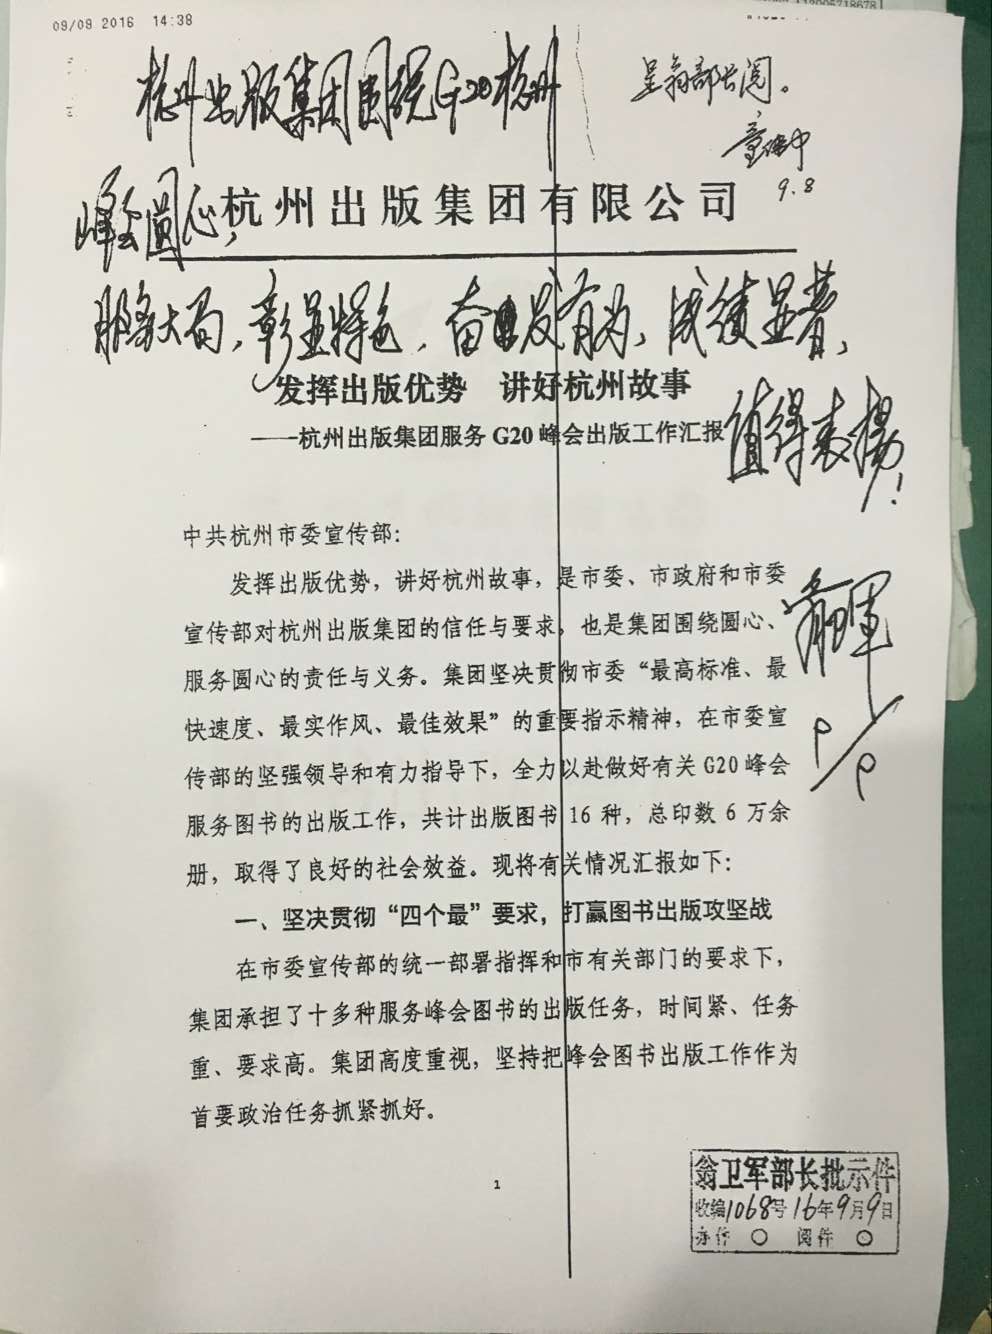 09/09 2016 14:38
呈翁部长阅。
9.8
杭州出版集团围绕G20杭州
峰会圆心,
杭州出版集团有限公司
服务大局,彰显特色,奋发有为,成绩显著,
值得表扬!
发挥出版优势 讲好杭州故事
——杭州出版集团服务 G20 峰会出版工作汇报
中共杭州市委宣传部：
发挥出版优势，讲好杭州故事，是市委、市政府和市委
宣传部对杭州出版集团的信任与要求，也是集团围绕圆心、
服务圆心的责任与义务。集团坚决贯彻市委“最高标准、最
快速度、最实作风、最佳效果”的重要指示精神，在市委宣
传部的坚强领导和有力指导下，全力以赴做好有关 G20 峰会
服务图书的出版工作，共计出版图书 16 种，总印数 6 万余
册，取得了良好的社会效益。现将有关情况汇报如下：
一、坚决贯彻“四个最”要求，打赢图书出版攻坚战
在市委宣传部的统一部署指挥和市有关部门的要求下，
集团承担了十多种服务峰会图书的出版任务，时间紧、任务
重、要求高。集团高度重视，坚持把峰会图书出版工作作为
首要政治任务抓紧抓好。
9/9
1
翁卫军部长批示件
收编1068号 16年9月9日
办件 ○ 阅件 ○